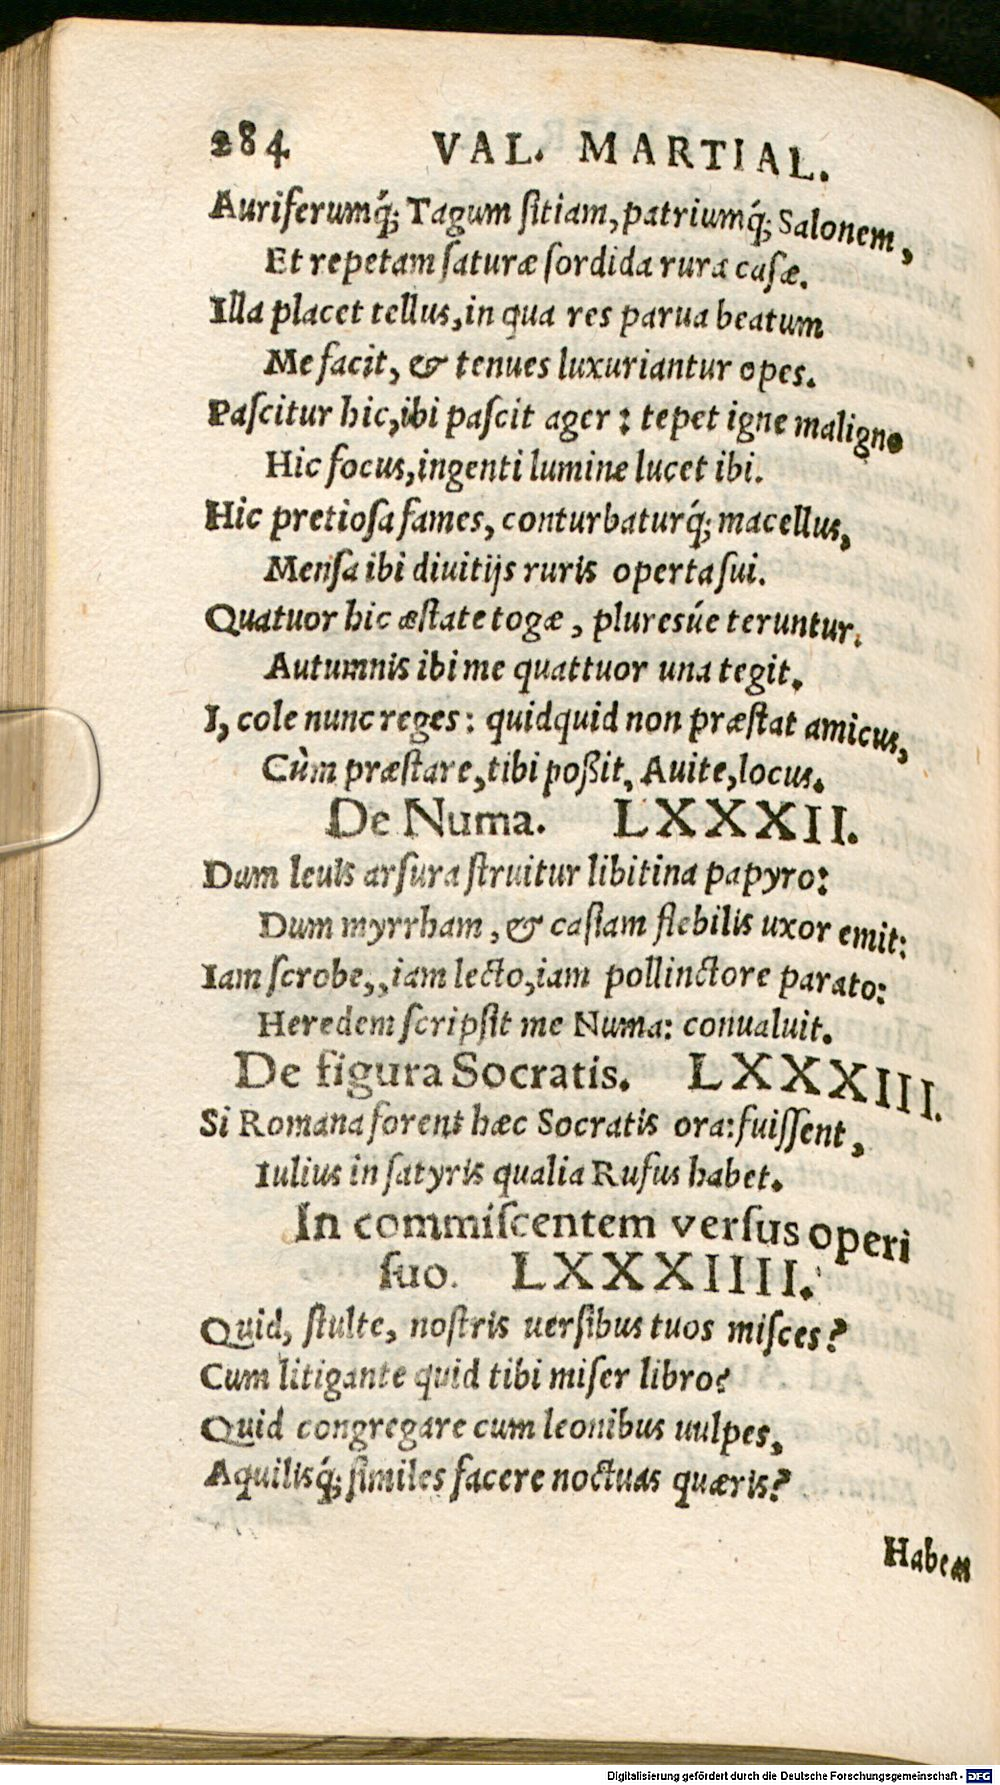 284 VAL. MARTIAL.
Auriferumq́; Tagum ſitiam, patriumq́; Salonem,
Et repetam ſaturæ ſordida rura caſæ.
Illa placet tellus, in qua res parua beatum
Me facit, & tenues luxuriantur opes.
Paſcitur hic, ibi paſcit ager: tepet igne maligno
Hic focus, ingenti lumine lucet ibi.
Hic pretioſa fames, conturbaturq́; macellus,
Menſa ibi diuitijs ruris operta ſui.
Quatuor hic æſtate togæ, plureśue teruntur.
Autumnis ibi me quattuor una tegit.
I, cole nunc reges: quidquid non præſtat amicus,
Cùm præſtare, tibi poßit, Auite, locus.
De Numa. LXXXII.
Dum leuis arſura ſtruitur libitina papyro:
Dum myrrham, & caſiam flebilis uxor emit:
Iam ſcrobe,, iam lecto, iam pollinctore parato:
Heredem ſcripſit me Numa: conualuit.
De figura Socratis. LXXXIII.
Si Romana forent hæc Socratis ora: fuiſſent,
Iulius in ſatyris qualia Rufus habet.
In commiſcentem verſus operi
ſuo. LXXXIIII.
Quid, ſtulte, noſtris uerſibus tuos miſces?
Cum litigante quid tibi miſer libro?
Quid congregare cum leonibus uulpes,
Aquilisq́; ſimiles facere noctuas quæris?
Habeas
Digitalisierung gefördert durch die Deutsche Forschungsgemeinschaft - DFG